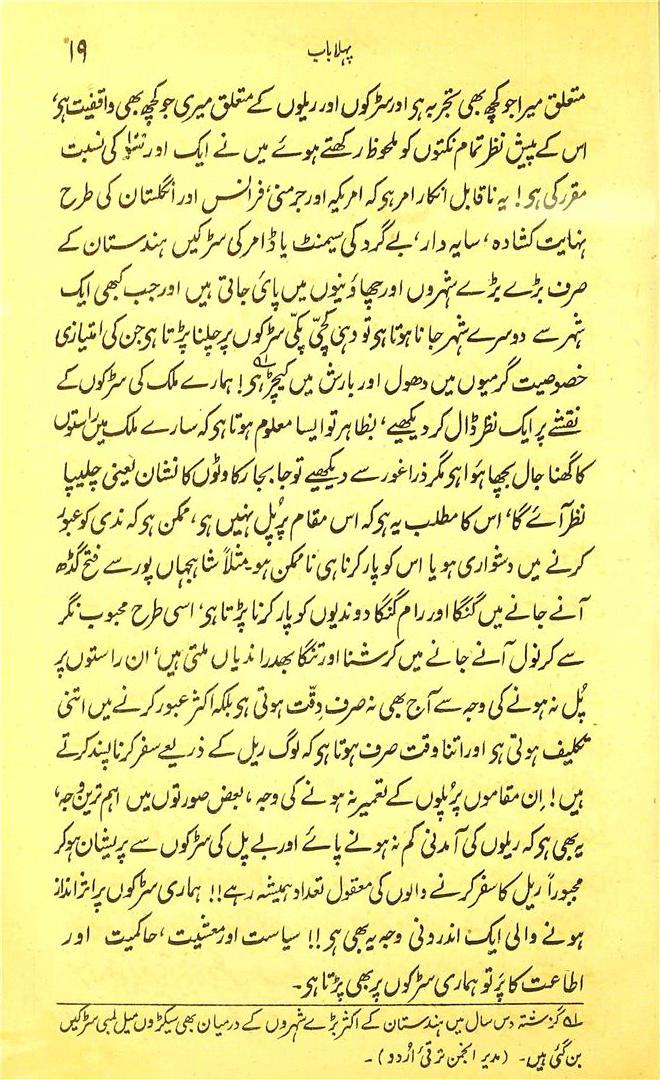 پہلا باب
۱۹
متعلق میرا جو کچھ بھی تجربہ ہی اور سڑکوں اور ریلوں کے متعلق میری جو کچھ بھی واقفیت ہی،
اس کے پیش نظر تمام نکتوں کو ملحوظ رکھتے ہوئے میں نے ایک اور تنلو کی نسبت
مقرر کی ہی! یہ ناقابل انکار امر ہی کہ امریکہ اور جرمنی، فرانس اور انگلستان کی طرح
نہایت کشادہ، سایہ دار، بے گرد کی سیمنٹ یا ڈامر کی سڑکیں ہندستان کے
صرف بڑے بڑے شہروں اور چھاؤنیوں میں پائی جاتی ہیں اور جب کبھی ایک
شہر سے دوسرے شہر جانا ہوتا ہی تو وہی کچی پکّی سڑکوں پر چلنا پڑتا ہی جن کی امتیازی
خصوصیت گرمیوں میں دھول اور بارش میں کیچڑ ہی!؂۱ ہمارے ملک کی سڑکوں کے
نقشے پر ایک نظر ڈال کر دیکھیے، بظاہر تو ایسا معلوم ہوتا ہی کہ سارے ملک میں راستوں
کا گھنا جال بچھا ہؤا ہی مگر ذرا غور سے دیکھیے تو جا بجا رکاوٹوں کا نشان یعنی چلیپا
نظر آئے گا، اس کا مطلب یہ ہی کہ اس مقام پر پُل نہیں ہی، ممکن ہی کہ ندی کو عبور
کرنے میں دشواری ہو یا اس کو پار کرنا ہی ناممکن ہو۔ مثلاً شاہجہاں پور سے فتح گڈھ
آنے جانے میں گنگا اور رام گنگا دو ندیوں کو پار کرنا پڑتا ہی، اسی طرح محبوب نگر
سے کرنول آنے جانے میں کرشنا اور تنگا بھدرا ندیاں ملتی ہیں، ان راستوں پر
پُل نہ ہونے کی وجہ سے آج بھی نہ صرف دِقّت ہوتی ہی بلکہ اکثر عبور کرنے میں اتنی
تکلیف ہوتی ہی اور اتنا وقت صرف ہوتا ہی کہ لوگ ریل کے ذریعے سفر کرنا پسند کرتے
ہیں! اِن مقاموں پر پُلوں کے تعمیر نہ ہونے کی وجہ، بعض صورتوں میں اہم ترین وجہ،
یہ بھی ہی کہ ریلوں کی آمدنی کم نہ ہونے پائے اور بے پل کی سڑکوں سے پریشان ہو کر
مجبوراً ریل کا سفر کرنے والوں کی معقول تعداد ہمیشہ رہے!! ہماری سڑکوں پر اثر انداز
ہونے والی ایک اندرونی وجہ یہ بھی ہی!! سیاست اور معیشت، حاکمیت اور
اطاعت کا پرَتو ہماری سڑکوں پر بھی پڑتا ہی۔
؂۱ گزشتہ دس سال میں ہندستان کے اکثر بڑے شہروں کے درمیان بھی سیکڑوں میل لمبی سڑکیں
بن گئی ہیں۔ (مدیر انجمن ترقیٔ اُردو)۔